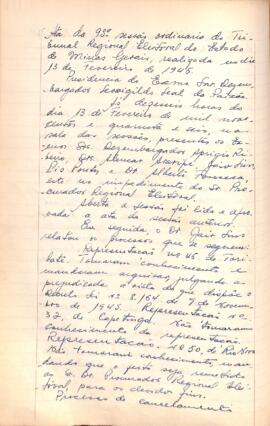 Ata da 93ª sessão ordinária do Tri-
bunal Regional Eleitoral do Estado
de Minas Gerais, realizada no dia
13 de Fevereiro de 1946.
Presidencia do Exmo Snr. Desem-
bargador Leal da Paixão.
Às dezesseis horas do
dia 13 de Fevereiro de mil nove-
centos e quarenta e seis, na
sala das sessões, presentes os Ex-
mos Srs. Desembargadores Aprigio Ri-
beiro, Drs. Alencar Araripe, Jair Lins,
e Dr. Alberto Fonseca,
no impedimento do Sr. Pro-
curador Regional Eleitoral.
Aberta a sessão foi lida e apro-
vada a ata da sessão anterior.
Em seguida, o Dr. Jair Lins
relatou os processos que se seguem:
Representação no 45 de
Tomaram conhecimento e
mandaram arquivar julgando-a
prejudicada à vista do que dispõe o
Decreto lei nº 8.164 de 9 de Novem-
bro de 1945. Representação nº
32, de Capetinga. Não tomaram
conhecimento da representação.
Representação nº 50, de Rio Novo
Não tomaram conhecimento, man-
dando que o feito seja remettido
ao Dr. Procurador Regional Elei-
toral, para os devidos fins.
Processo de cancelamento